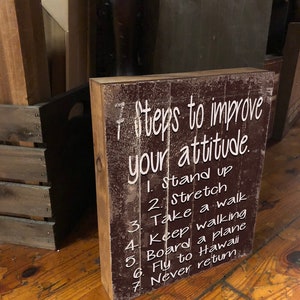 7 Steps to improve
your attitude.
1. Stand up
2. Stretch
3. Take a walk
4. Keep walking
5. Board a plane
6. Fly to Hawaii
7. Never return